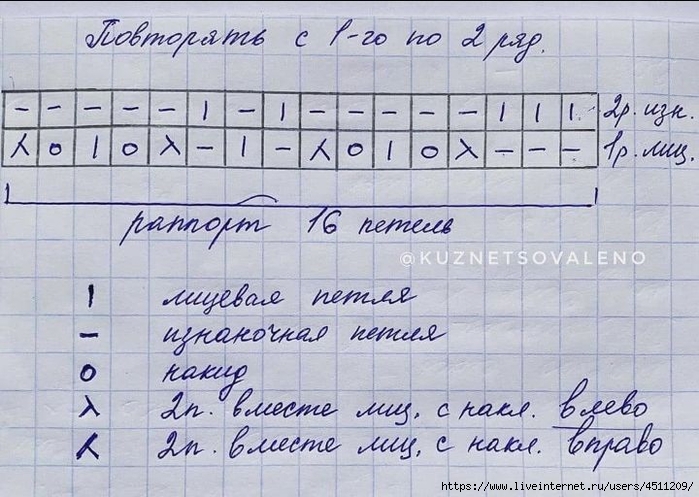 Повторять с 1-го по 2 ряд.
— — — — — | — | — — — — — | | | 2р. изн.
⅄ o | o λ — | — ⅄ o | o λ — — — 1р. лиц.
раппорт 16 петель
@KUZNETSOVALENO
| лицевая петля
— изнаночная петля
o накид
λ 2п. вместе лиц. с накл. влево
⅄ 2п. вместе лиц. с накл. вправо
https://www.liveinternet.ru/users/4511209/